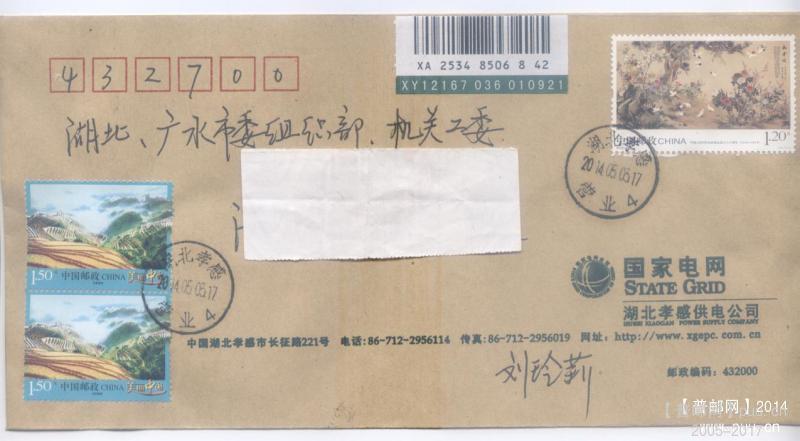 XA 2534 8506 8 42
XY12167 036 010921
432700
湖北、广水市委组织部、机关工委
中国邮政 CHINA
1.20元
湖北孝感
2014.05.05.17
营业 4
1.50元 中国邮政 CHINA 美丽中国
1.50元 中国邮政 CHINA 美丽中国
湖北孝感
2014.05.05.17
营业 4
国家电网
STATE GRID
湖北孝感供电公司
HUBEI XIAOGAN POWER SUPPLY COMPANY
中国湖北孝感市长征路221号 电话:86-712-2956114 传真:86-712-2956019 网址:http://www.xgepc.com.cn
邮政编码:432000
刘玲莉
【普邮网】2014
2005-2017